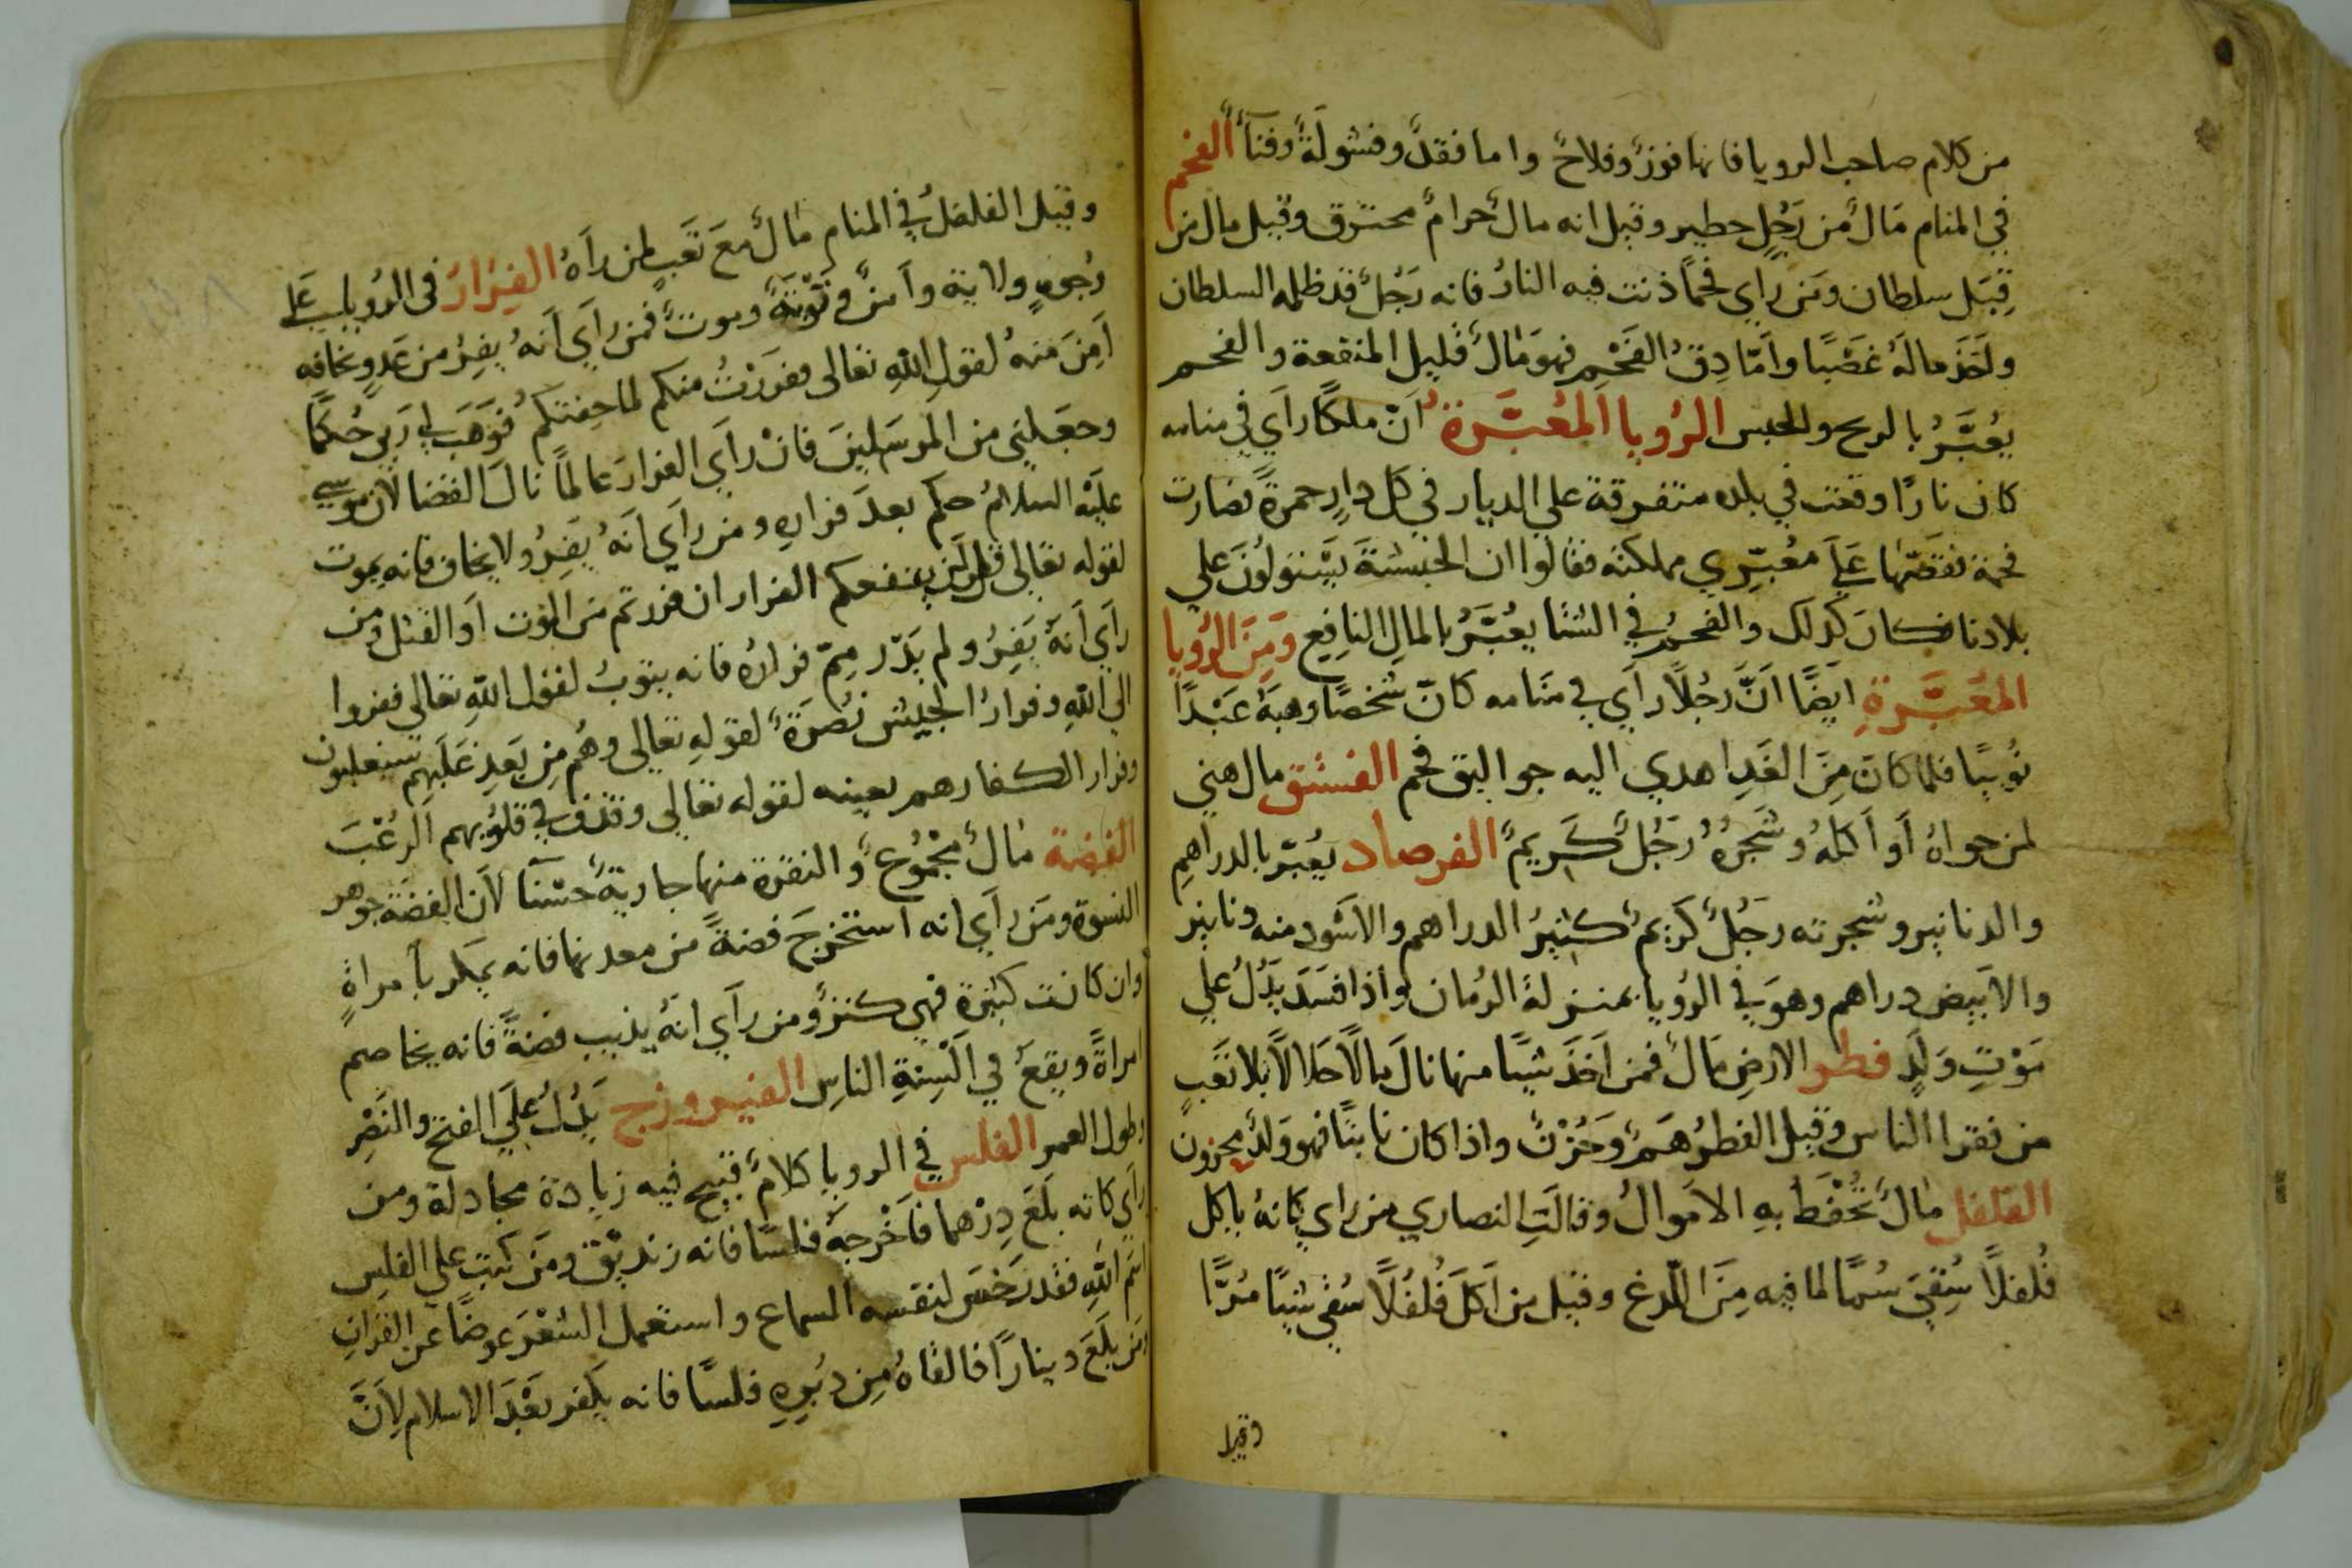 من كلام صاحب الرويا فانها فوزٌ وفلاحٌ واما فقدٌ وفشولَةٌ وفنآءٌ الفحم
في المنام مَالٌ من رَجُلٍ خطير وقيل انه مالٌ حرامٌ محترق وقيل مال من
قِبَل سلطان ومَن راي فحمًا ذنت فيه النارُ فانه رَجُلٌ قد ظلمه السلطان
واَخَذ مالَهُ غَصْبًا واَمّا دِقُ الفَحْمِ فهوَ مَالٌ قليل المنفعة والفحم
يُعبَّرُ بالريح والحبس الرُويا المُعبَّرة اَنّ ملكًا رَاَي في منامه
كان نارًا وقعت في بلده متفرقة علي الديار في كل دارٍ جمرةً فصَارت
فحمة فقَصّهَا عَلَي مُعبّرِي مملكته فقالوا ان الحبشةَ يَسْتولُونَ علي
بلادنا فكانَ كذلك والفحمُ في الشتا يُعبَّرُ بالمالِ النافِع وَمِنَ الرُويا
المعَبَّرةِ ايضًا اَنَّ رَجُلاً رَاَي في منَامه كانّ شخصًا وهبَهُ عَبْدًا
نُوبيًا فلما كانَ مِنَ الغَدِ اهدي اليه جواليق فحم الفستق مال هني
لمن حواهُ اَو اَكلهُ وشجَرُهُ رَجُلٌ كَريمٌ الفرصاد يُعبّر بالدراهمِ
والدنانير وشجرته رجَلٌ كَريمٌ كثيرُ الدراهم والاسْود منه دنانير
والاَبيض دراهم وهوَ في الرُويا بمنزلة الرُمان واذا فسَدَ يَدُلُ علي
مَوْتِ وَلَدٍ فطر الارضِ مَالٌ فمن اَخَذَ شيًا منها نالَ مالاً حَلالاً بلا تعَبٍ
من فقرا الناس وقيل الفطرُ هَمٌ وَحُزْنٌ واذا كان نابتًا فهو وَلدٌ محزون
الفلفل مالٌ تُحْفَظ بهِ الامَوالُ وقالَتِ النصاري من راي كانهُ ياكل
فُلفلاً سُقِيَ سُمًا لما فيه مِنَ اللّدغ وقيل من اَكَلَ فُلفُلاً سُقي شيًا مُرًّا
وقيل
وقيل الفلفلُ في المنام مَالٌ معَ تعَبٍ لمن رَآهُ الفِرَارُ في الرُويا عَلي
رُجوعٍ ولاية واَمنٌ وتَوْبَةٌ وموتٌ فمن رَاَي اَنهُ يفِرُ من عَدوٍ يخافه
اَمِنَ منهُ لقولِ اللهِ تعالى ففرَرْتُ منكم لما خِفتكم فوَهَبَ لي رَبي حُكمًا
وجعَلني من المرسَلينَ فانْ راَي الفرارَ عالمًا نالَ القضا لان موسي
عليَهْ السلامُ حكم بعدَ فرارهِ ومن راَي انَهُ يفِرُ ولا يخاف فانه يموت
لقوله تعالي قل لن ينفعكم الفرار ان فررتم من الموت اَو القتل ومن
راَي اَنهُ يَفِرُ ولم يَدْر مِمّ فرارهُ فانه يتوبُ لقول اللهِ تعالي ففروا
الي اللهِ وفرارُ الجيش نُصرَةٌ لقولهِ تعالي وهُم مِن بَعدِ غَلَبهِم سيغلبون
وفرار الكفار هم بعينه لقوله تعالي وقذف في قلوبهم الرعْبَ
الفضة مالٌ مجْمُوعٌ والنقرة منها جاريةٌ حسْنآ لان الفضَة جوهر
النسوة ومَن راَي انه استخرجَ فضةً من معدنها فانه يمكر بامراةٍ
وان كانت كبيرة فهي كنزٌ ومن راَي انهُ يذيب فضةً فانه يخاصم
امراةً ويقعُ في اَلْسِنةِ الناسِ الفيروزج يَدُلُ علَي الفتح والنَصْرِ
وطول العمر الفلس في الرويا كلامٌ قبيح فيه زيادة مجادلة ومن
راَي كانه بلَعَ دِرْهما فاَخْرجهُ فلسًا فانه زنديق ومَن كتب علي الفلسِ
اسْم اللهِ فقد رَخَصَ لنفسه السماع واستعمل الشعْرَ عوضًا عن القرآن
ومَن بلَعَ دينارًا فالقاهُ مِن دُبرهِ فلسًا فانه يكفر بَعْدَ الاسلام لِاَنَّ